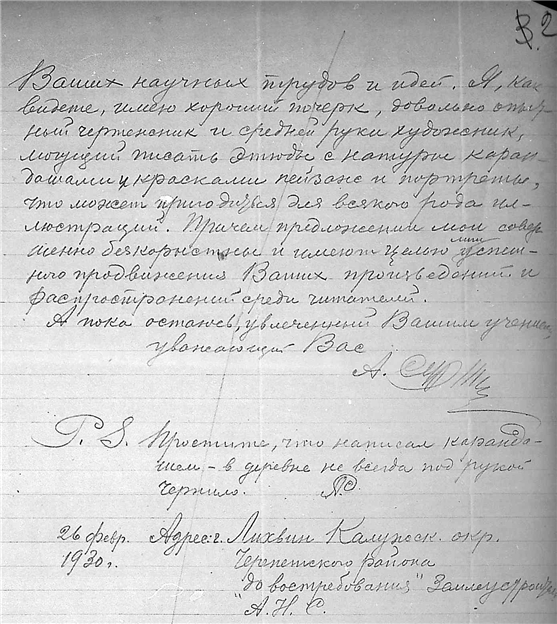 2
Ваших научных трудов и идей. Я, как
видете, имею хороший почерк, довольно опыт-
ный чертежник и средней руки художник,
могущий писать этюды с натуры каран-
дашами и красками пейзаж и портреты,
что может пригодиться для всякого рода ил-
люстраций. Причем предложении мои совер-
шенно бескорыстны и имеют целью лишь успеш-
ного продвижения Ваших произведений и
распространений среди читателей.
А пока остаюсь, увлеченный Вашим учением,
уважающий Вас
А.
P. S. Простите, что написал каранда-
шем – в деревне не всегда под рукой
чернило. АС
26 февр. Адрес: г. Лихвин Калужск. окр.
1930 г. Черепетского района
"до востребования" Землеустроит.
А. Н. С.